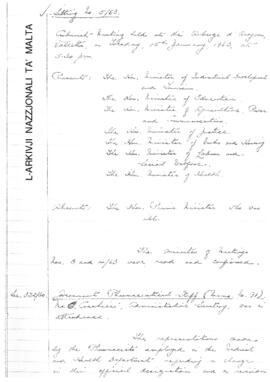 L-ARKIVJI NAZZJONALI TA' MALTA
Sitting No. 5/63.
Cabinet Meeting held at the Auberge d'Aragon,
Valletta, on Tuesday, 15th January, 1963, at
5.30 pm
Present: The Hon. Minister of Industrial Development
and Tourism
The Hon. Minister of Education
The Hon. Minister of Agriculture, Power
and Communications
The Hon. Minister of Justice
The Hon. Minister of Works and Housing
The Hon. Minister of Labour and
Social Welfare
The Hon. Minister of Health
Absent: The Hon. Prime Minister who was
The minutes of meetings
Nos. 3 and 4/63 were read and confirmed.
Government Pharmaceutical Staff
Administrative Secretary, was in
attendance.
The representations made
by the Pharmacists employed in the Medical
and Health Department regarding a change
in their official designation and a revision